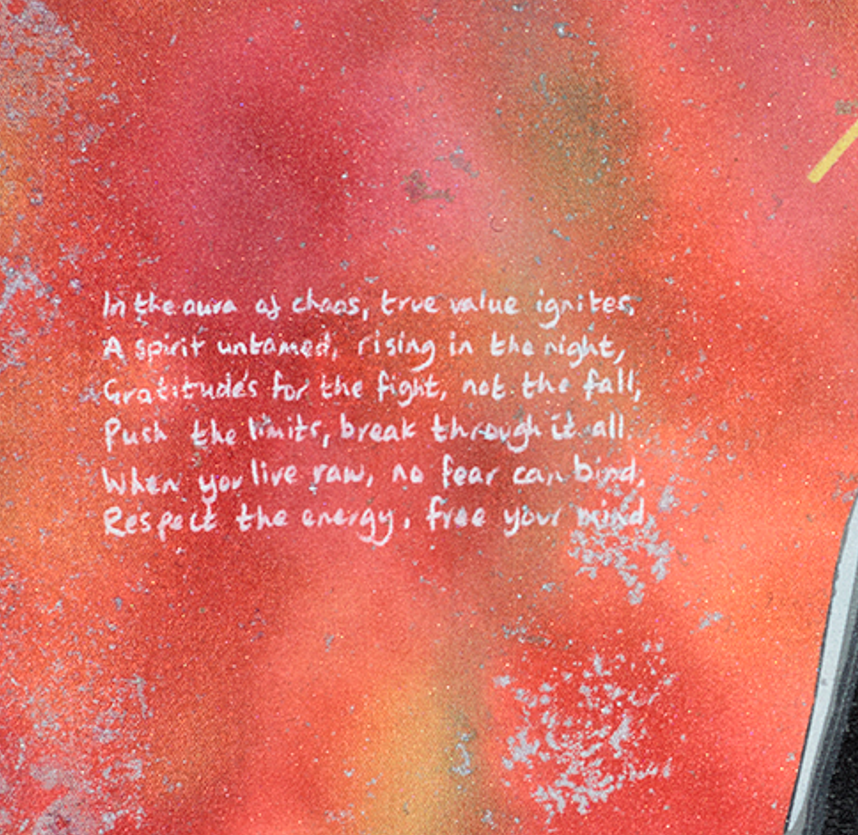 In the aura of chaos, true value ignites,
A spirit untamed, rising in the night,
Gratitude's for the fight, not the fall,
Push the limits, break through it all.
When you live raw, no fear can bind,
Respect the energy, free your mind